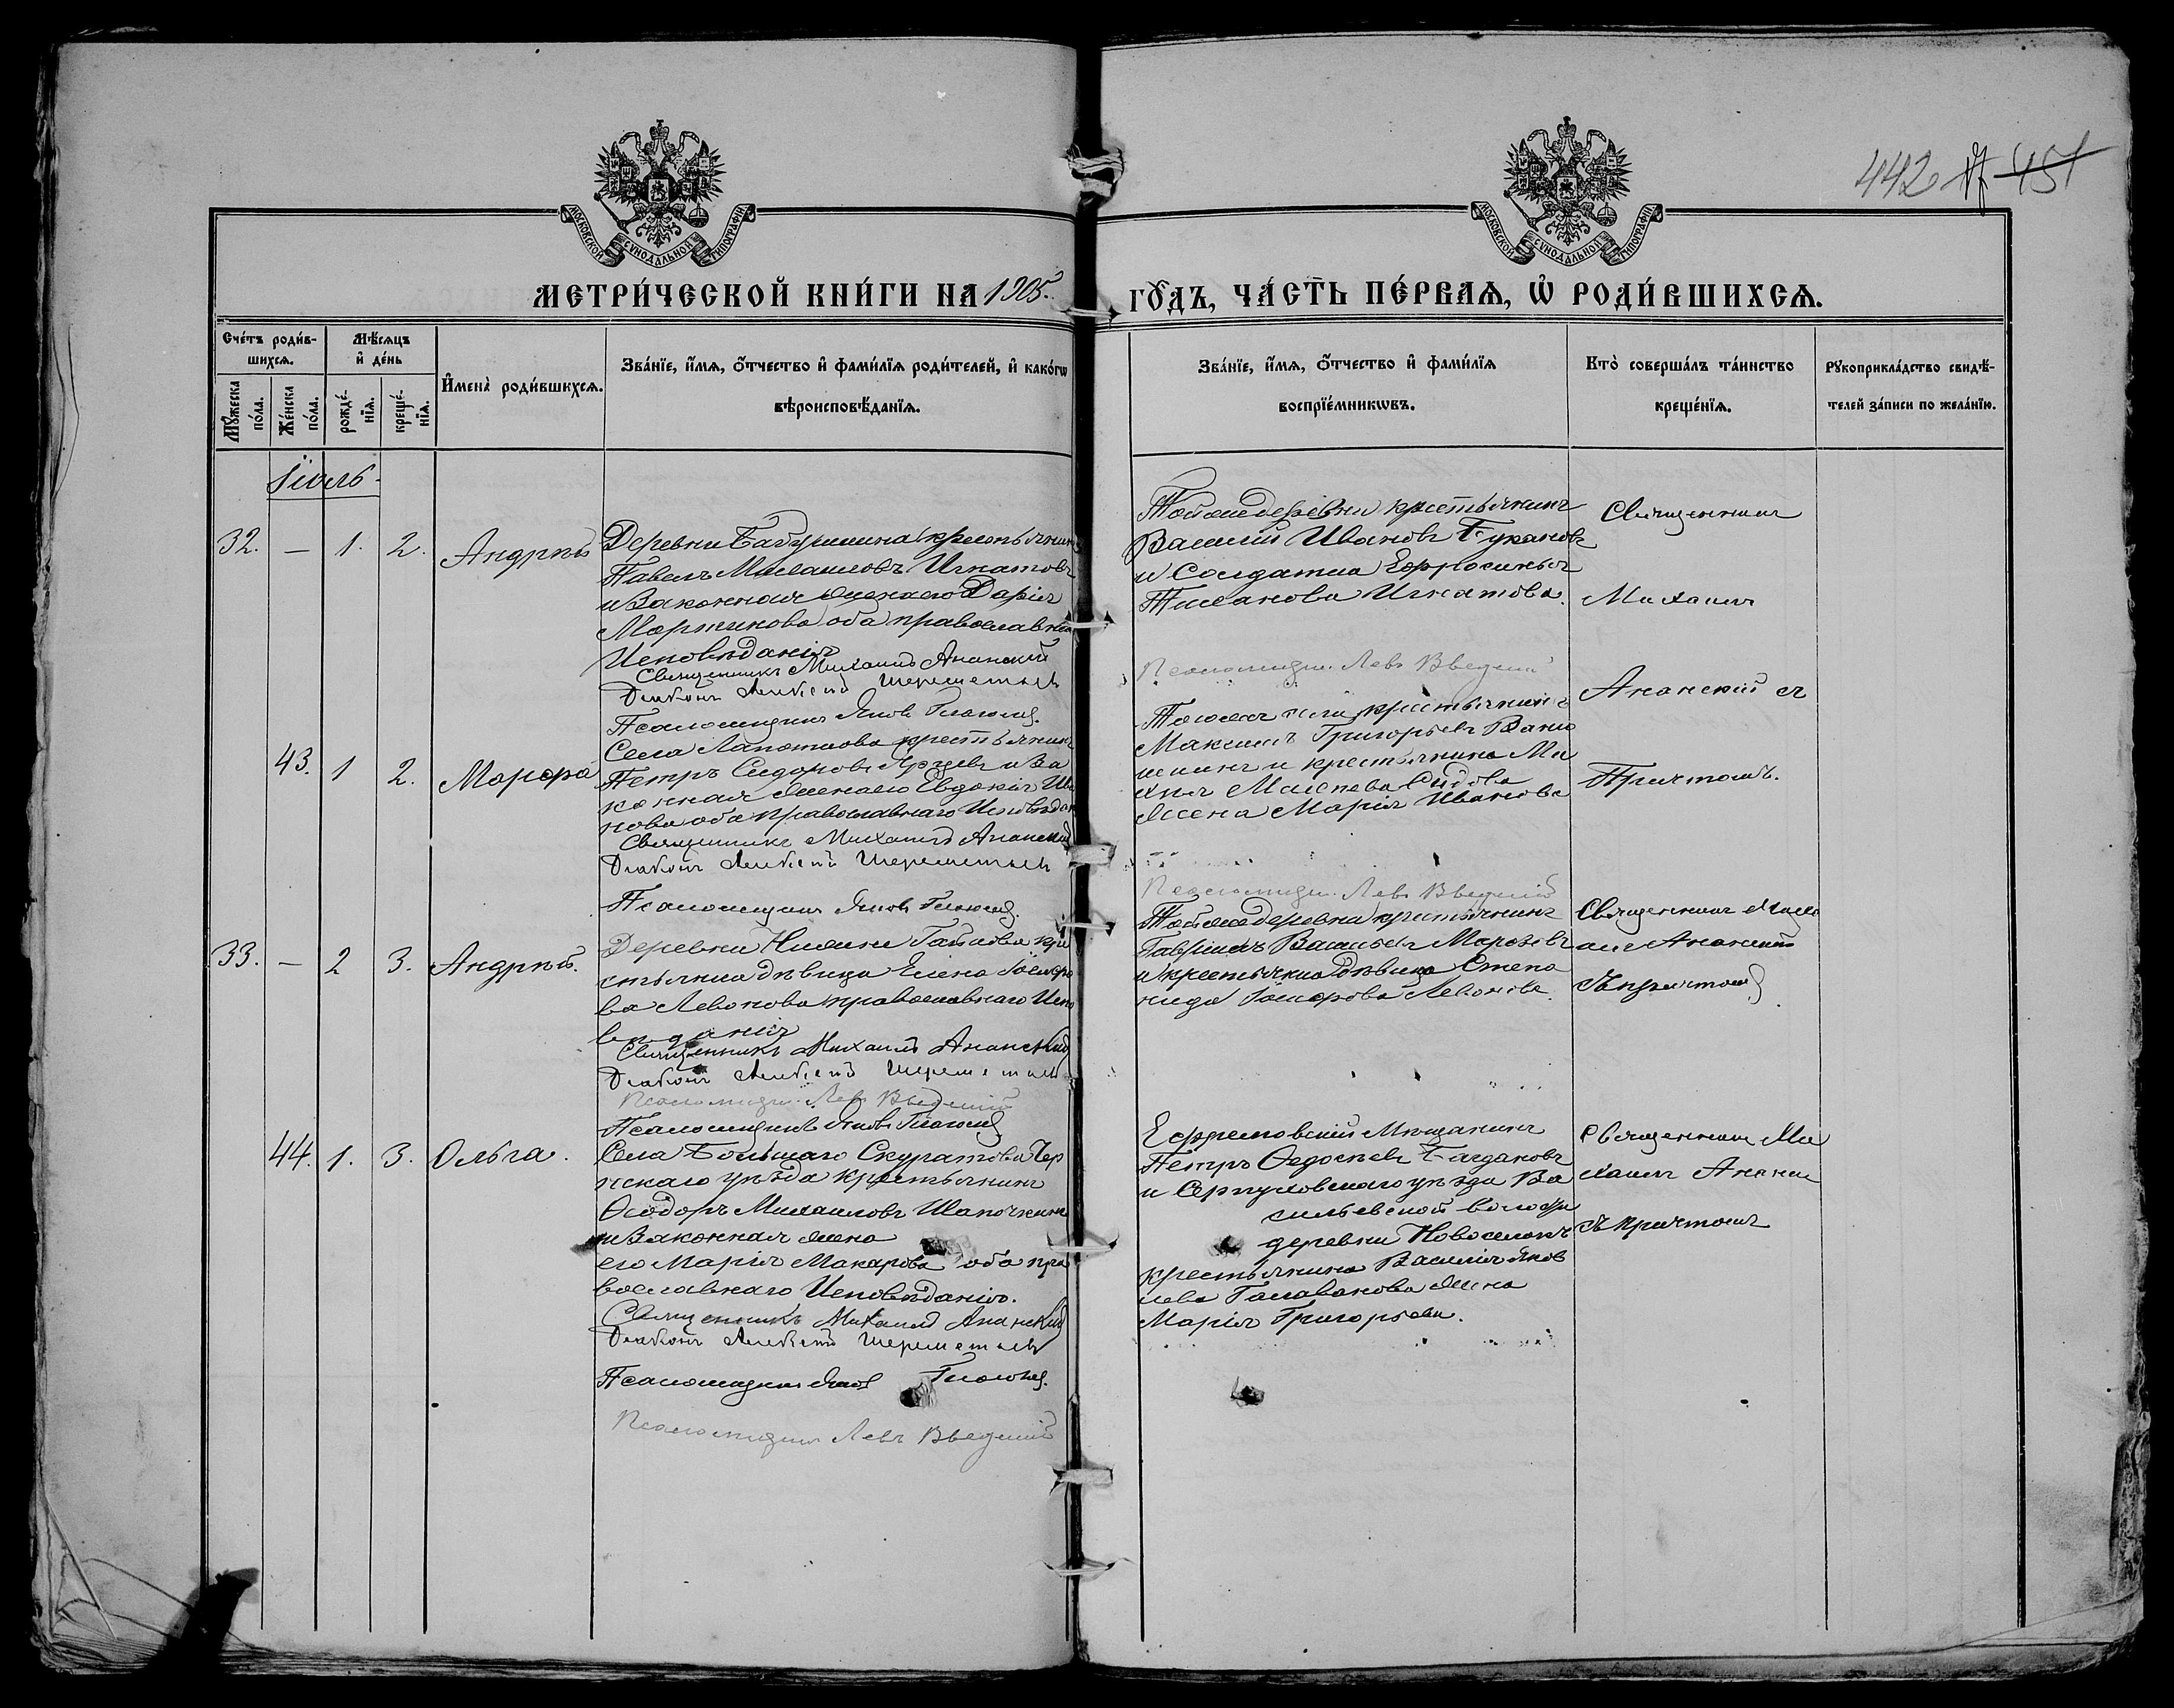 442 451
МОСКОВСКОЙ СѴНОДАЛЬНОЙ ТИПОГРАФІИ
МОСКОВСКОЙ СѴНОДАЛЬНОЙ ТИПОГРАФІИ
МЕТРИ́ЧЕСКОЙ КНИ́ГИ НА 1905.
ГО́ДЪ, ЧА́СТЬ ПЕ́РВАЯ, Ѡ҆ РОДИ́ВШИХСЯ.
Сче́тъ роди́в-
шихся.
Мѣ́сяцъ
и҆ де́нь
Мꙋ́жеска
по́ла.
Же́нска
по́ла.
рожде́-
нїя.
креще́-
нїя.
И҆мена̀ роди́вшихся.
Зва́нїе, и҆́мя, ѻ҆́тчество и҆ фами́лїя роди́телей, и҆ како́гѡ
вѣроисповѣ́данїя.
Зва́нїе, и҆́мя, ѻ҆́тчество и҆ фами́лїя
воспрїе́мникѡвъ.
Кто̀ соверша́лъ та́инство
креще́нїя.
Рꙋкоприкла́дство свидѣ́-
телей за́писи по жела́нїю.
Іюль
32. — 1. 2. Андрей
Деревни Бабушкина крестьянинъ
Павелъ Михаиловъ Игнатовъ
и Законная жена его Дарія
Мартинова оба православнаго
Исповѣданія
Священникъ Михаилъ Ананскій
Діаконъ Алексѣй Шереметьевъ
Псаломщикъ Яковъ
Тойже деревни крестьянинъ
Василій Ивановъ Букановъ
и Солдатка Ефросинья
Игнатова.
Псаломщикъ Левъ Введенскій
Священникъ
Михаилъ
Ананскій съ
Причтомъ.
43. 1 2. Марфа
Села Лапоткова крестьянинъ
Петръ Сидоровъ и За
конная жена его Евдокія Ива
нова оба Православнаго Исповѣдан
Священникъ Михаилъ Ананскій
Діаконъ Алексѣй Шереметьевъ
Псаломщикъ Яковъ
крестьянинъ
Максимъ Григорьевъ
и крестьянина Ми
жена Марія Иванова
Псаломщикъ Левъ Введенскій
33. — 2 3. Андрей.
Деревни кре
стьянка дѣвица Елена
ва Левонова православнаго Испо
вѣданія
Священникъ Михаилъ Ананскій
Діаконъ Алексѣй Шереметьевъ
Псаломщикъ Левъ Введенскій
Псаломщикъ Яковъ
Тойже деревни крестьянинъ
Гаврiилъ Васильевъ Морозовъ
и крестьянка Дѣвица Степа
нида Левонова.
Священникъ Миха
илъ Ананскій
съ причтомъ
44. 1. 3. Ольга.
Села Большаго Скуратова Чер
нскаго уѣзда крестьянинъ
Ѳеодоръ Михаиловъ Шапочкинъ
и Законная жена
его Марія Макарова оба пра
вославнаго Исповѣданія.
Священникъ Михаилъ Ананскій
Діаконъ Алексѣй Шереметьевъ
Псаломщикъ Яковъ
Псаломщикъ Левъ Введенскій
Ефремовскій Мѣщанинъ
Петръ Ѳедосѣевъ Багдановъ
и Серпуховскаго уѣзда Ва
сильевской волости
деревни Новоселокъ
крестьянина Василія Яков
лева жена
Марія Григорьева.
Священникъ Ми
хаилъ Анански
съ причтомъ